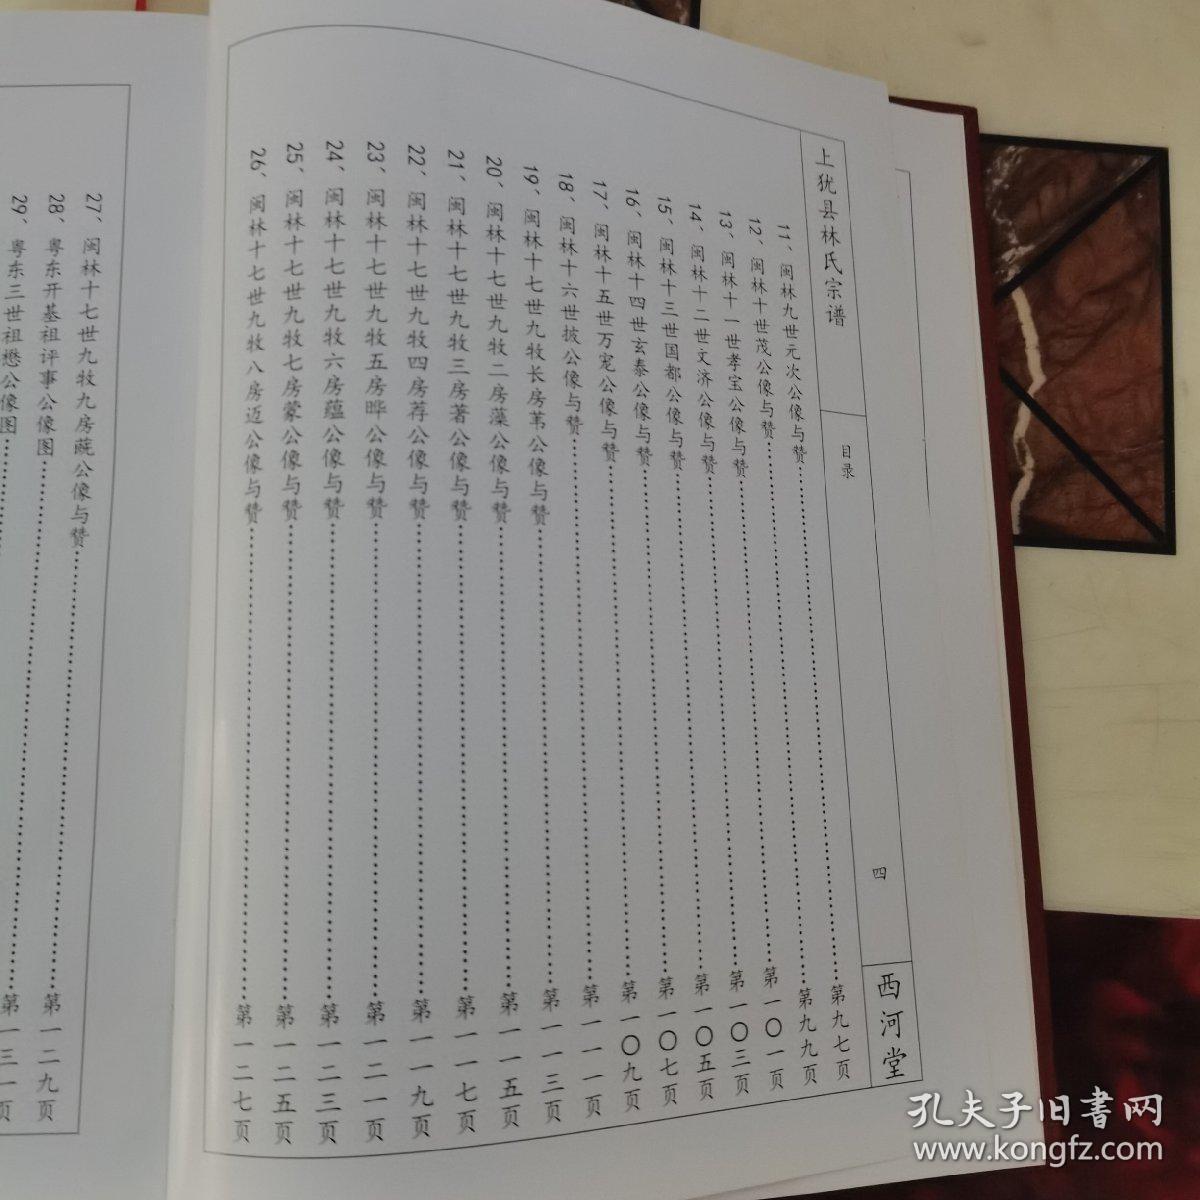 上犹县林氏宗谱
目录
四
西河堂
11、闽林九世元次公像与赞……第九七页
12、闽林十世茂公像与赞……第九九页
13、闽林十一世孝宝公像与赞……第一〇一页
14、闽林十二世文济公像与赞……第一〇三页
15、闽林十三世国都公像与赞……第一〇五页
16、闽林十四世玄泰公像与赞……第一〇七页
17、闽林十五世万宠公像与赞……第一〇九页
18、闽林十六世披公像与赞……第一一一页
19、闽林十七世九牧长房苇公像与赞……第一一三页
20、闽林十七世九牧二房藻公像与赞……第一一五页
21、闽林十七世九牧三房著公像与赞……第一一七页
22、闽林十七世九牧四房荐公像与赞……第一一九页
23、闽林十七世九牧五房晔公像与赞……第一二一页
24、闽林十七世九牧六房蕴公像与赞……第一二三页
25、闽林十七世九牧七房蒙公像与赞……第一二五页
26、闽林十七世九牧八房迈公像与赞……第一二七页
27、闽林十七世九牧九房蔇公像与赞……
28、粤东开基祖评事公像图……第一二九页
29、粤东三世祖懋公像图……第一三一页
孔夫子旧书网
www.kongfz.com